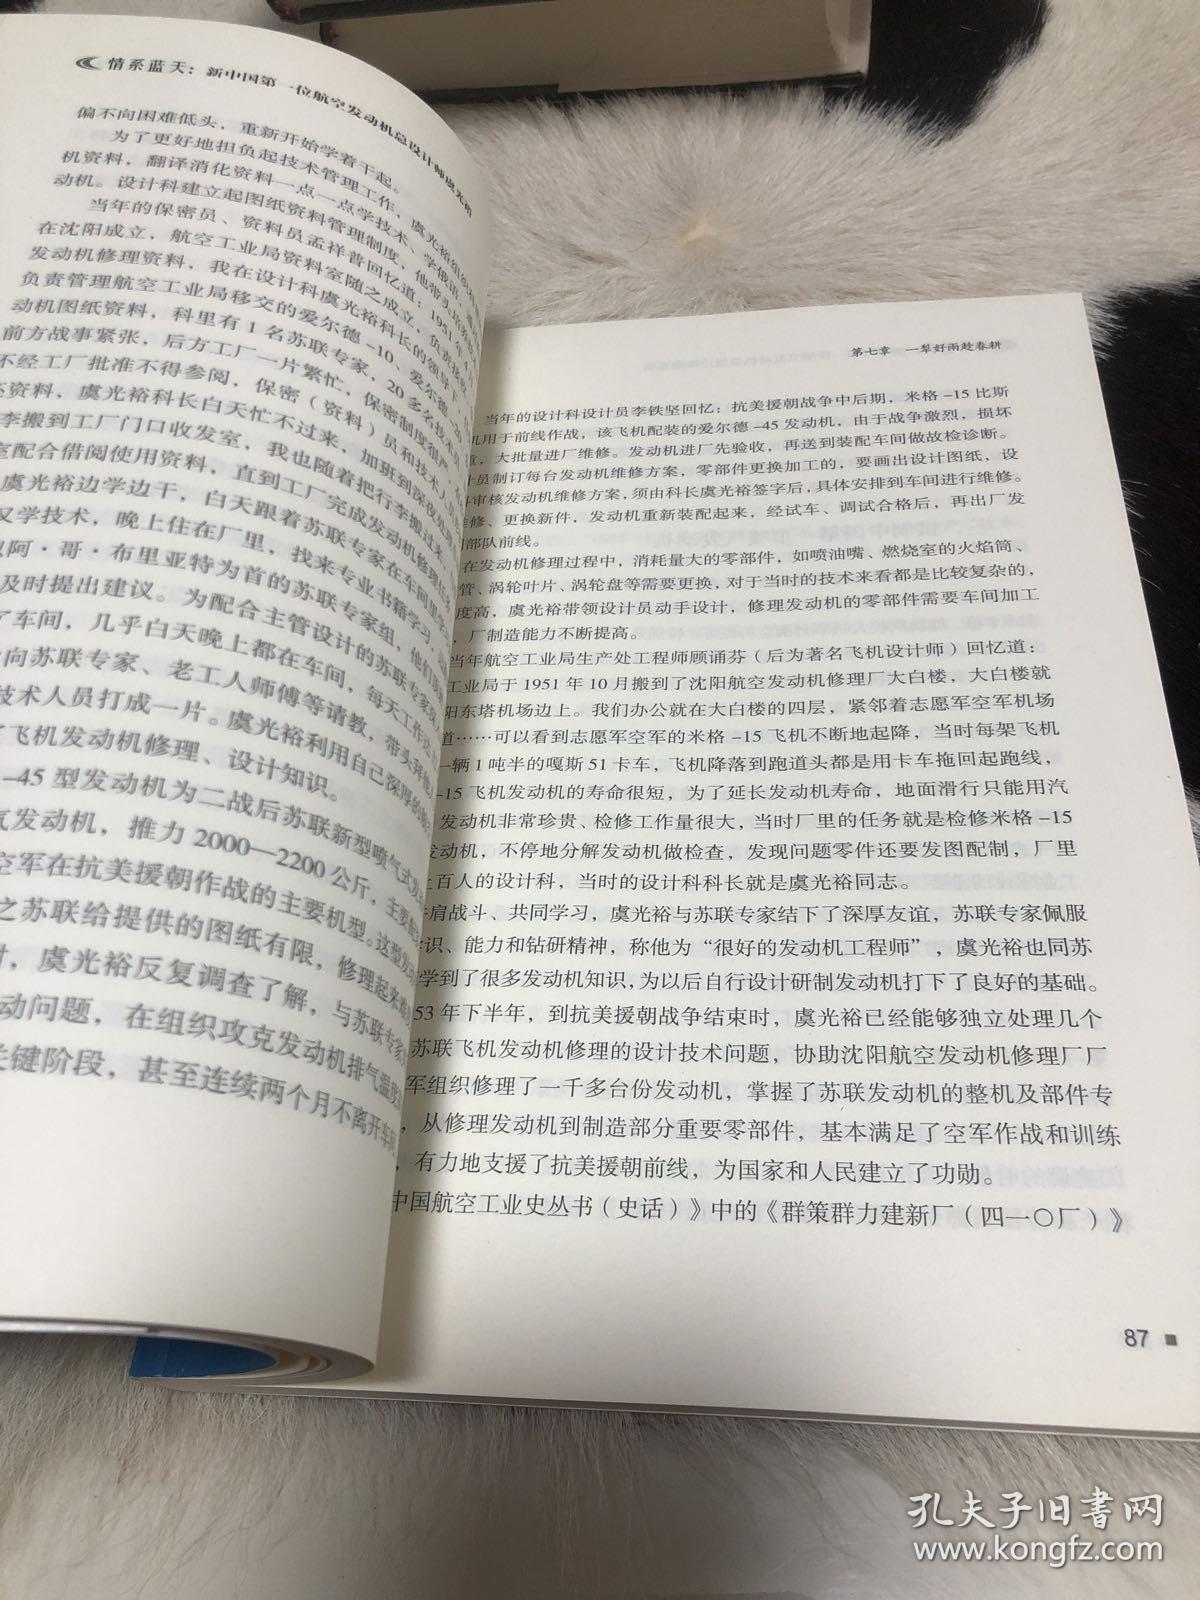 情系蓝天：新中国第一位航空发动机总设计师虞光裕
偏不向困难低头，重新开始学着干起。
为了更好地担负起技术管理工作，虞光裕组织
机资料，翻译消化资料一点一点学技术、学俄语，
动机。设计科建立起图纸资料管理制度，他带头
当年的保密员、资料员孟祥普回忆道：1951年4月
在沈阳成立，航空工业局资料室随之成立，负责
发动机修理资料，我在设计科虞光裕科长的领导下，
负责管理航空工业局移交的爱尔德-10、爱尔德-20
动机图纸资料，科里有1名苏联专家，20多名技术员
前方战事紧张，后方工厂一片繁忙，保密制度很严
不经工厂批准不得参阅，保密（资料）员和技术人员
资料，虞光裕科长白天忙不过来，加班到深夜
李搬到工厂门口收发室，我也随着把行李搬过来，
室配合借阅使用资料，直到工厂完成发动机修理任务
虞光裕边学边干，白天跟着苏联专家在车间里
又学技术，晚上住在厂里，找来专业书籍学习，
阿·哥·布里亚特为首的苏联专家组，他们
及时提出建议。为配合主管设计的苏联专家
了车间，几乎白天晚上都在车间，每天工作达
向苏联专家、老工人师傅等请教，带头拜他
技术人员打成一片。虞光裕利用自己深厚的
了飞机发动机修理、设计知识。
-45型发动机为二战后苏联新型喷气式发
气发动机，推力2000—2200公斤，主要
空军在抗美援朝作战的主要机型。这型发
之苏联给提供的图纸有限，修理起来难
时，虞光裕反复调查了解，与苏联专家
动问题，在组织攻克发动机排气温度
关键阶段，甚至连续两个月不离开车间
第七章 一犁好雨趁春耕
当年的设计科设计员李铁坚回忆：抗美援朝战争中后期，米格-15比斯
机用于前线作战，该飞机配装的爱尔德-45发动机，由于战争激烈，损坏
重，大批量进厂维修。发动机进厂先验收，再送到装配车间做故检诊断。
计员制订每台发动机维修方案，零部件更换加工的，要画出设计图纸，设
科审核发动机维修方案，须由科长虞光裕签字后，具体安排到车间进行维修。
维修、更换新件，发动机重新装配起来，经试车、调试合格后，再出厂发
到部队前线。
在发动机修理过程中，消耗量大的零部件，如喷油嘴、燃烧室的火焰筒、
管、涡轮叶片、涡轮盘等需要更换，对于当时的技术来看都是比较复杂的，
度高，虞光裕带领设计员动手设计，修理发动机的零部件需要车间加工
，厂制造能力不断提高。
当年航空工业局生产处工程师顾诵芬（后为著名飞机设计师）回忆道：
工业局于1951年10月搬到了沈阳航空发动机修理厂大白楼，大白楼就
阳东塔机场边上。我们办公就在大白楼的四层，紧邻着志愿军空军机场
道……可以看到志愿军空军的米格-15飞机不断地起降，当时每架飞机
一辆1吨半的嘎斯51卡车，飞机降落到跑道头都是用卡车拖回起跑线，
-15飞机发动机的寿命很短，为了延长发动机寿命，地面滑行只能用汽
发动机非常珍贵、检修工作量很大，当时厂里的任务就是检修米格-15
发动机，不停地分解发动机做检查，发现问题零件还要发图配制，厂里
上百人的设计科，当时的设计科科长就是虞光裕同志。
肩战斗、共同学习，虞光裕与苏联专家结下了深厚友谊，苏联专家佩服
识、能力和钻研精神，称他为“很好的发动机工程师”，虞光裕也同苏
学到了很多发动机知识，为以后自行设计研制发动机打下了良好的基础。
53年下半年，到抗美援朝战争结束时，虞光裕已经能够独立处理几个
苏联飞机发动机修理的设计技术问题，协助沈阳航空发动机修理厂厂
军组织修理了一千多台份发动机，掌握了苏联发动机的整机及部件专
，从修理发动机到制造部分重要零部件，基本满足了空军作战和训练
，有力地支援了抗美援朝前线，为国家和人民建立了功勋。
中国航空工业史丛书（史话）》中的《群策群力建新厂（四一〇厂）》
87
孔夫子旧书网
www.kongfz.com